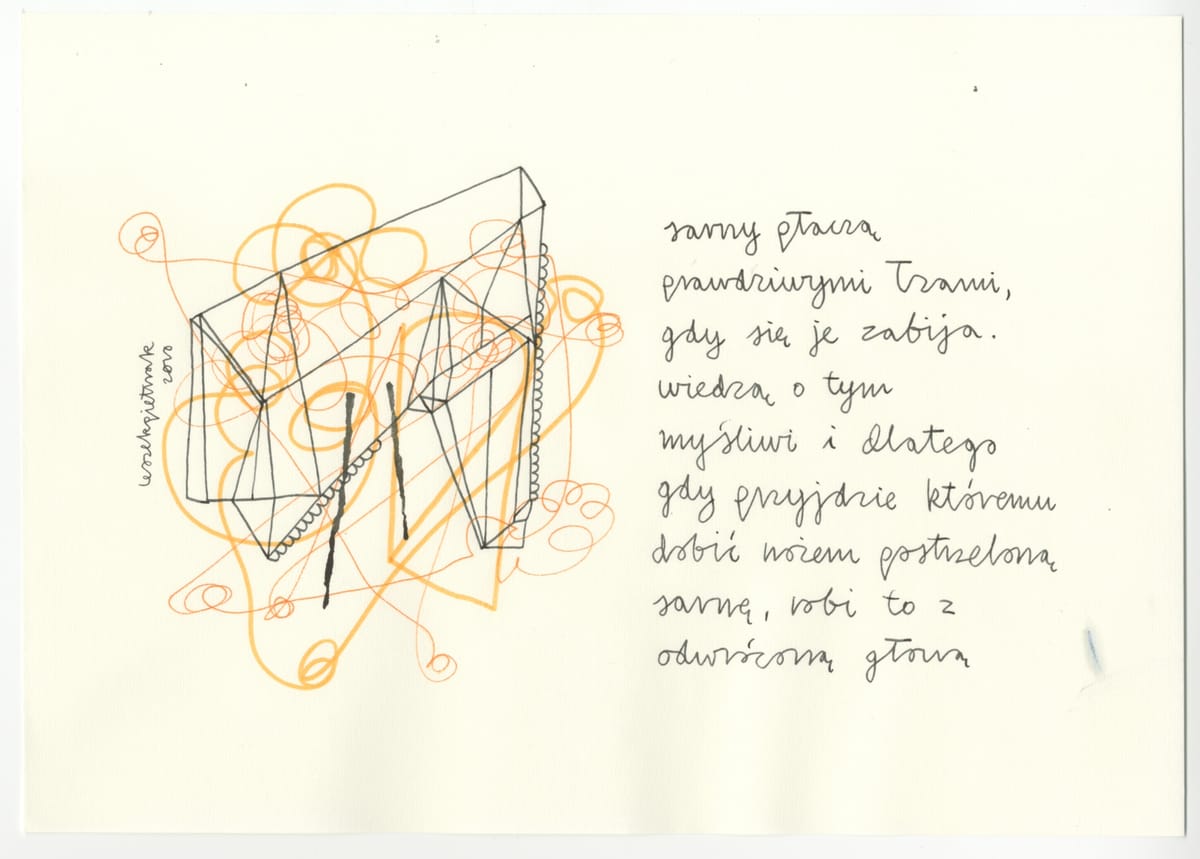 leszekpietrzak
2010
sarny płaczą
prawdziwymi łzami,
gdy się je zabija.
wiedzą o tym
myśliwi i dlatego
gdy przyjdzie któremu
dobić nożem postrzeloną
sarnę, robi to z
odwróconą głową